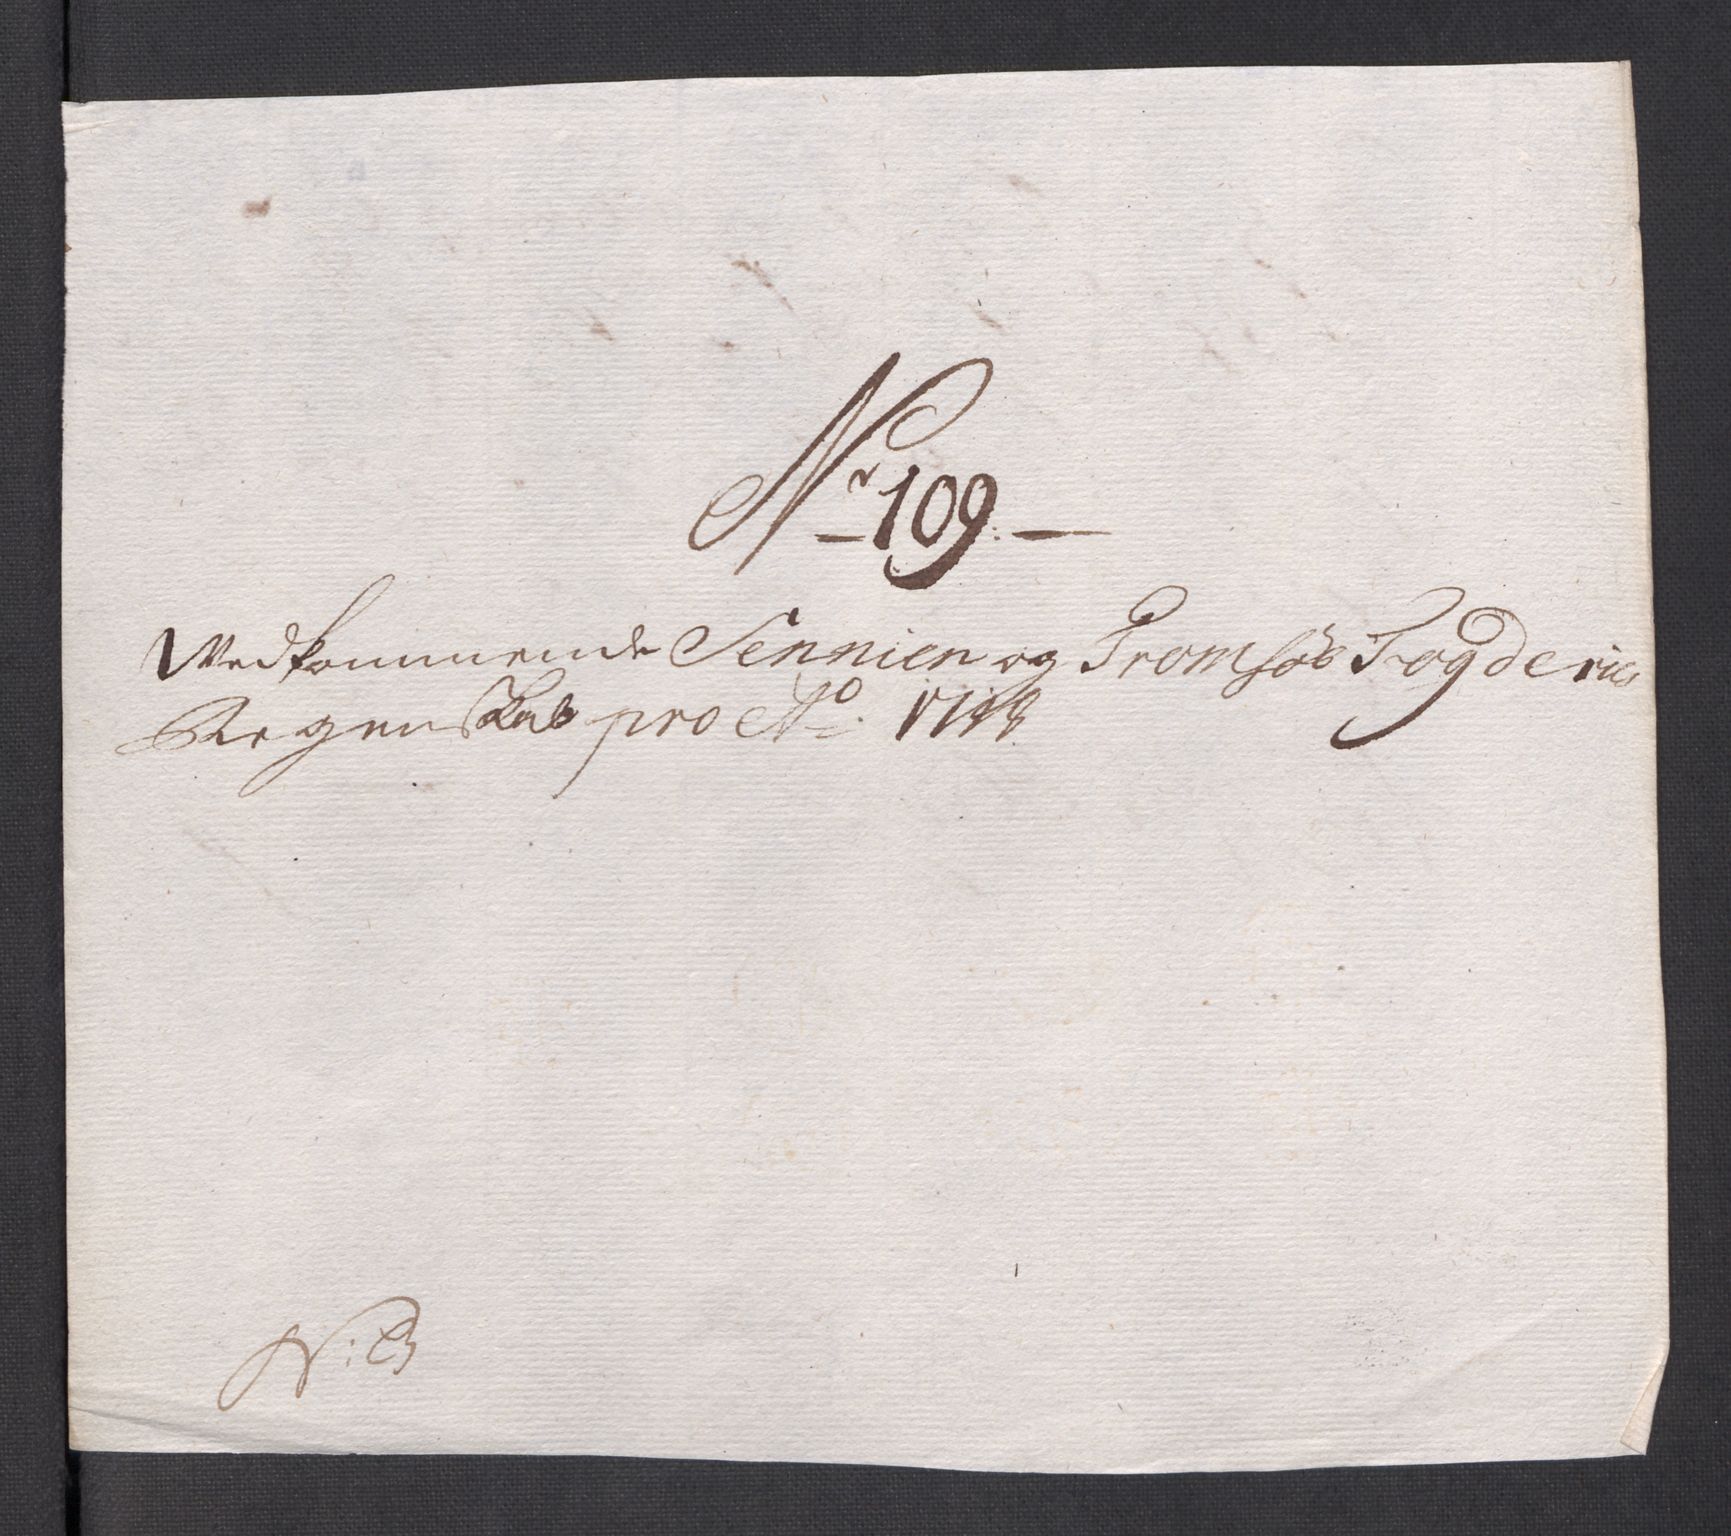 Nr 109.
Vedkommende Sennien og Tromsöe Fogderies
Regenskab pro Ao. 1718
N: C